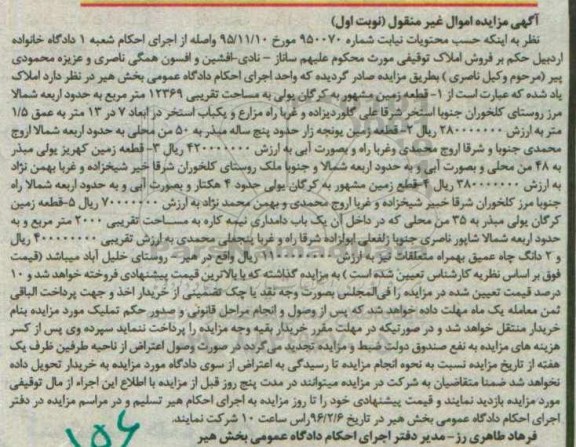 آگهی مزایده اموال غیر منقول (نوبت اول)
نظر به اینکه حسب محتویات نیابت شماره ۹۵۰۰۷۰ مورخ ۹۵/۱۱/۱۰ واصله از اجرای احکام شعبه ۱ دادگاه خانواده
اردبیل حکم بر فروش املاک توقیفی مورث محکوم علیهم ساناز - نادی-افشین و افسون همگی ناصری و عزیزه محمودی
پیر (مرحوم وکیل ناصری) بطریق مزایده صادر گردیده که واحد اجرای احکام دادگاه عمومی بخش هیر در نظر دارد املاک
یاد شده که عبارت است از ۱- قطعه زمین مشهور به کرگان یولی به مساحت تقریبی ۱۲۳۶۹ متر مربع به حدود اربعه شمالا
مرز روستای کلخوران جنوبا استخر شرقا علی گلوردیزاده و غربا راه مزارع و یکباب استخر در ابعاد ۷ در ۱۳ متر به عمق ۱/۵
متر به ارزش ۲۸۰۰۰۰۰۰۰ ریال ۲- قطعه زمین یونجه زار حدود پنج ساله مبذر به ۵۰ من محلی به حدود اربعه شمالا اروج
محمدی جنوبا و شرقا اروج محمدی وغربا راه و بصورت آبی به ارزش ۴۲۰۰۰۰۰۰۰ ریال ۳- قطعه زمین کهریز یولی مبذر
به ۴۸ من محلی و بصورت آبی و به حدود اربعه شمالا و جنوبا ملک روستای کلخوران شرقا خیر شیخزاده و غربا بهمن نژاد
به ارزش ۳۸۰۰۰۰۰۰۰ ریال ۴-قطع زمین مشهور به کرگان یولی حدود ۴ هکتار و بصورت آبی و به حدود اربعه شمالا راه
جنوبا مرز کلخوران شرقا خبیر شیخزاده و غربا اروج محمدی و بهمن محمد نژاد به ارزش ۷۰۰۰۰۰۰۰۰ ریال ۵-قطعه زمین
کرگان یولی مبذر به ۳۵ من محلی که در داخل آن یک باب دامداری نیمه کاره به مساحت تقریبی ۲۰۰۰ متر مربع و به
حدود اربعه شمالا شاپور ناصری جنوبا زلفعلی ایوازاده شرقا راه و غربا پنجعلی محمدی به ارزش تقریبی ۴۰۰۰۰۰۰۰۰ ریال
و ۲ دانگ چاه عمیق بهمراه متعلقات نیز به ارزش ریال واقع در هیر - روستای خلیل آباد میباشد (قیمت
فوق بر اساس نظریه کارشناس تعیین شده است) به مزایده گذاشته که با بالاترین قیمت پیشنهادی فروخته خواهد شد و ۱۰
درصد قیمت تعیین شده در مزایده را فی‌المجلس بصورت وجه نقد یا چک تضمینی از خریدار اخذ و جهت پرداخت الباقی
ثمن معامله یک ماه مهلت داده خواهد شد که پس از وصول و انجام مراحل قانونی و صدور حکم تملیک مورد مزایده بنام
خریدار منتقل خواهد شد و در صورتیکه در مهلت مقرر خریدار بقیه وجه مزایده را پرداخت ننماید سپرده وی پس از کسر
هزینه های مزایده به نفع صندوق دولت ضبط و مزایده تجدید می‌گردد در صورت وصول اعتراض از ناحیه طرفین ظرف یک
هفته از تاریخ مزایده نسبت به نحوه انجام مزایده تا رسیدگی به اعتراض از سوی دادگاه مورد مزایده به خریدار تحویل داده
نخواهد شد ضمنا متقاضیان به شرکت در مزایده میتوانند در مدت پنج روز قبل از مزایده با اطلاع این اجراء از مال توقیفی
مورد مزایده بازدید نمایند و قیمت پیشنهادی خود را تا روز مزایده به اجرای احکام هیر تسلیم و در مراسم مزایده در دفتر
اجرای احکام دادگاه عمومی بخش هیر در تاریخ ۹۶/۲/۶ راس ساعت ۱۰ شرکت نمایند.
فرهاد طاهری رز- مدیر دفتر اجرای احکام دادگاه عمومی بخش هیر